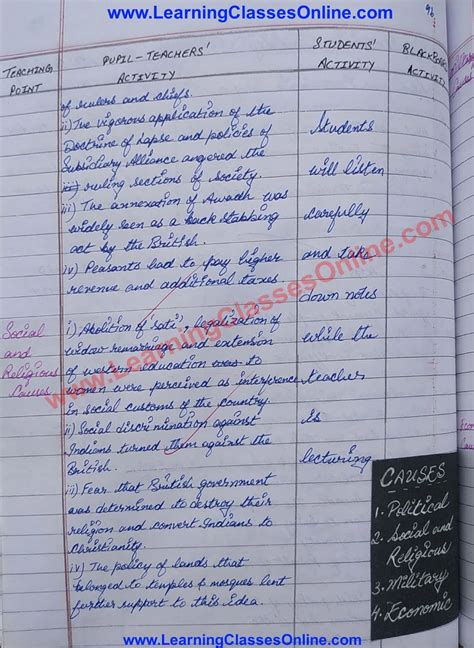 www.LearningClassesOnline.com
96
TEACHING POINT
PUPIL-TEACHERS' ACTIVITY
STUDENTS' ACTIVITY
BLACKBOARD ACTIVITY
of rulers and chiefs.
ii) The vigorous application of the
Doctrine of Lapse and policies of
Subsidiary Alliance angered the
ruling sections of society.
iii) The annexation of Awadh was
widely seen as a back stabbing
act by the British.
iv) Peasants had to pay higher
revenue and additional taxes.
Social
and
Religious
Causes
i) Abolition of 'sati', legalization of
widow remarriage and extension
of western education was to
women were perceived as interference
in social customs of the country.
ii) Social discrimination against
Indians turned them against the
British.
iii) Fear that British government
was determined to destroy their
religion and convert Indians to
Christianity.
iv) The policy of lands that
belonged to temples & mosques lent
further support to this idea.
Students
will listen
carefully
and take
down notes
while the
teacher
is
lecturing
CAUSES
1. Political
2. Social and
Religious
3. Military
4. Economic
www.LearningClassesOnline.com
www.LearningClassesOnline.com